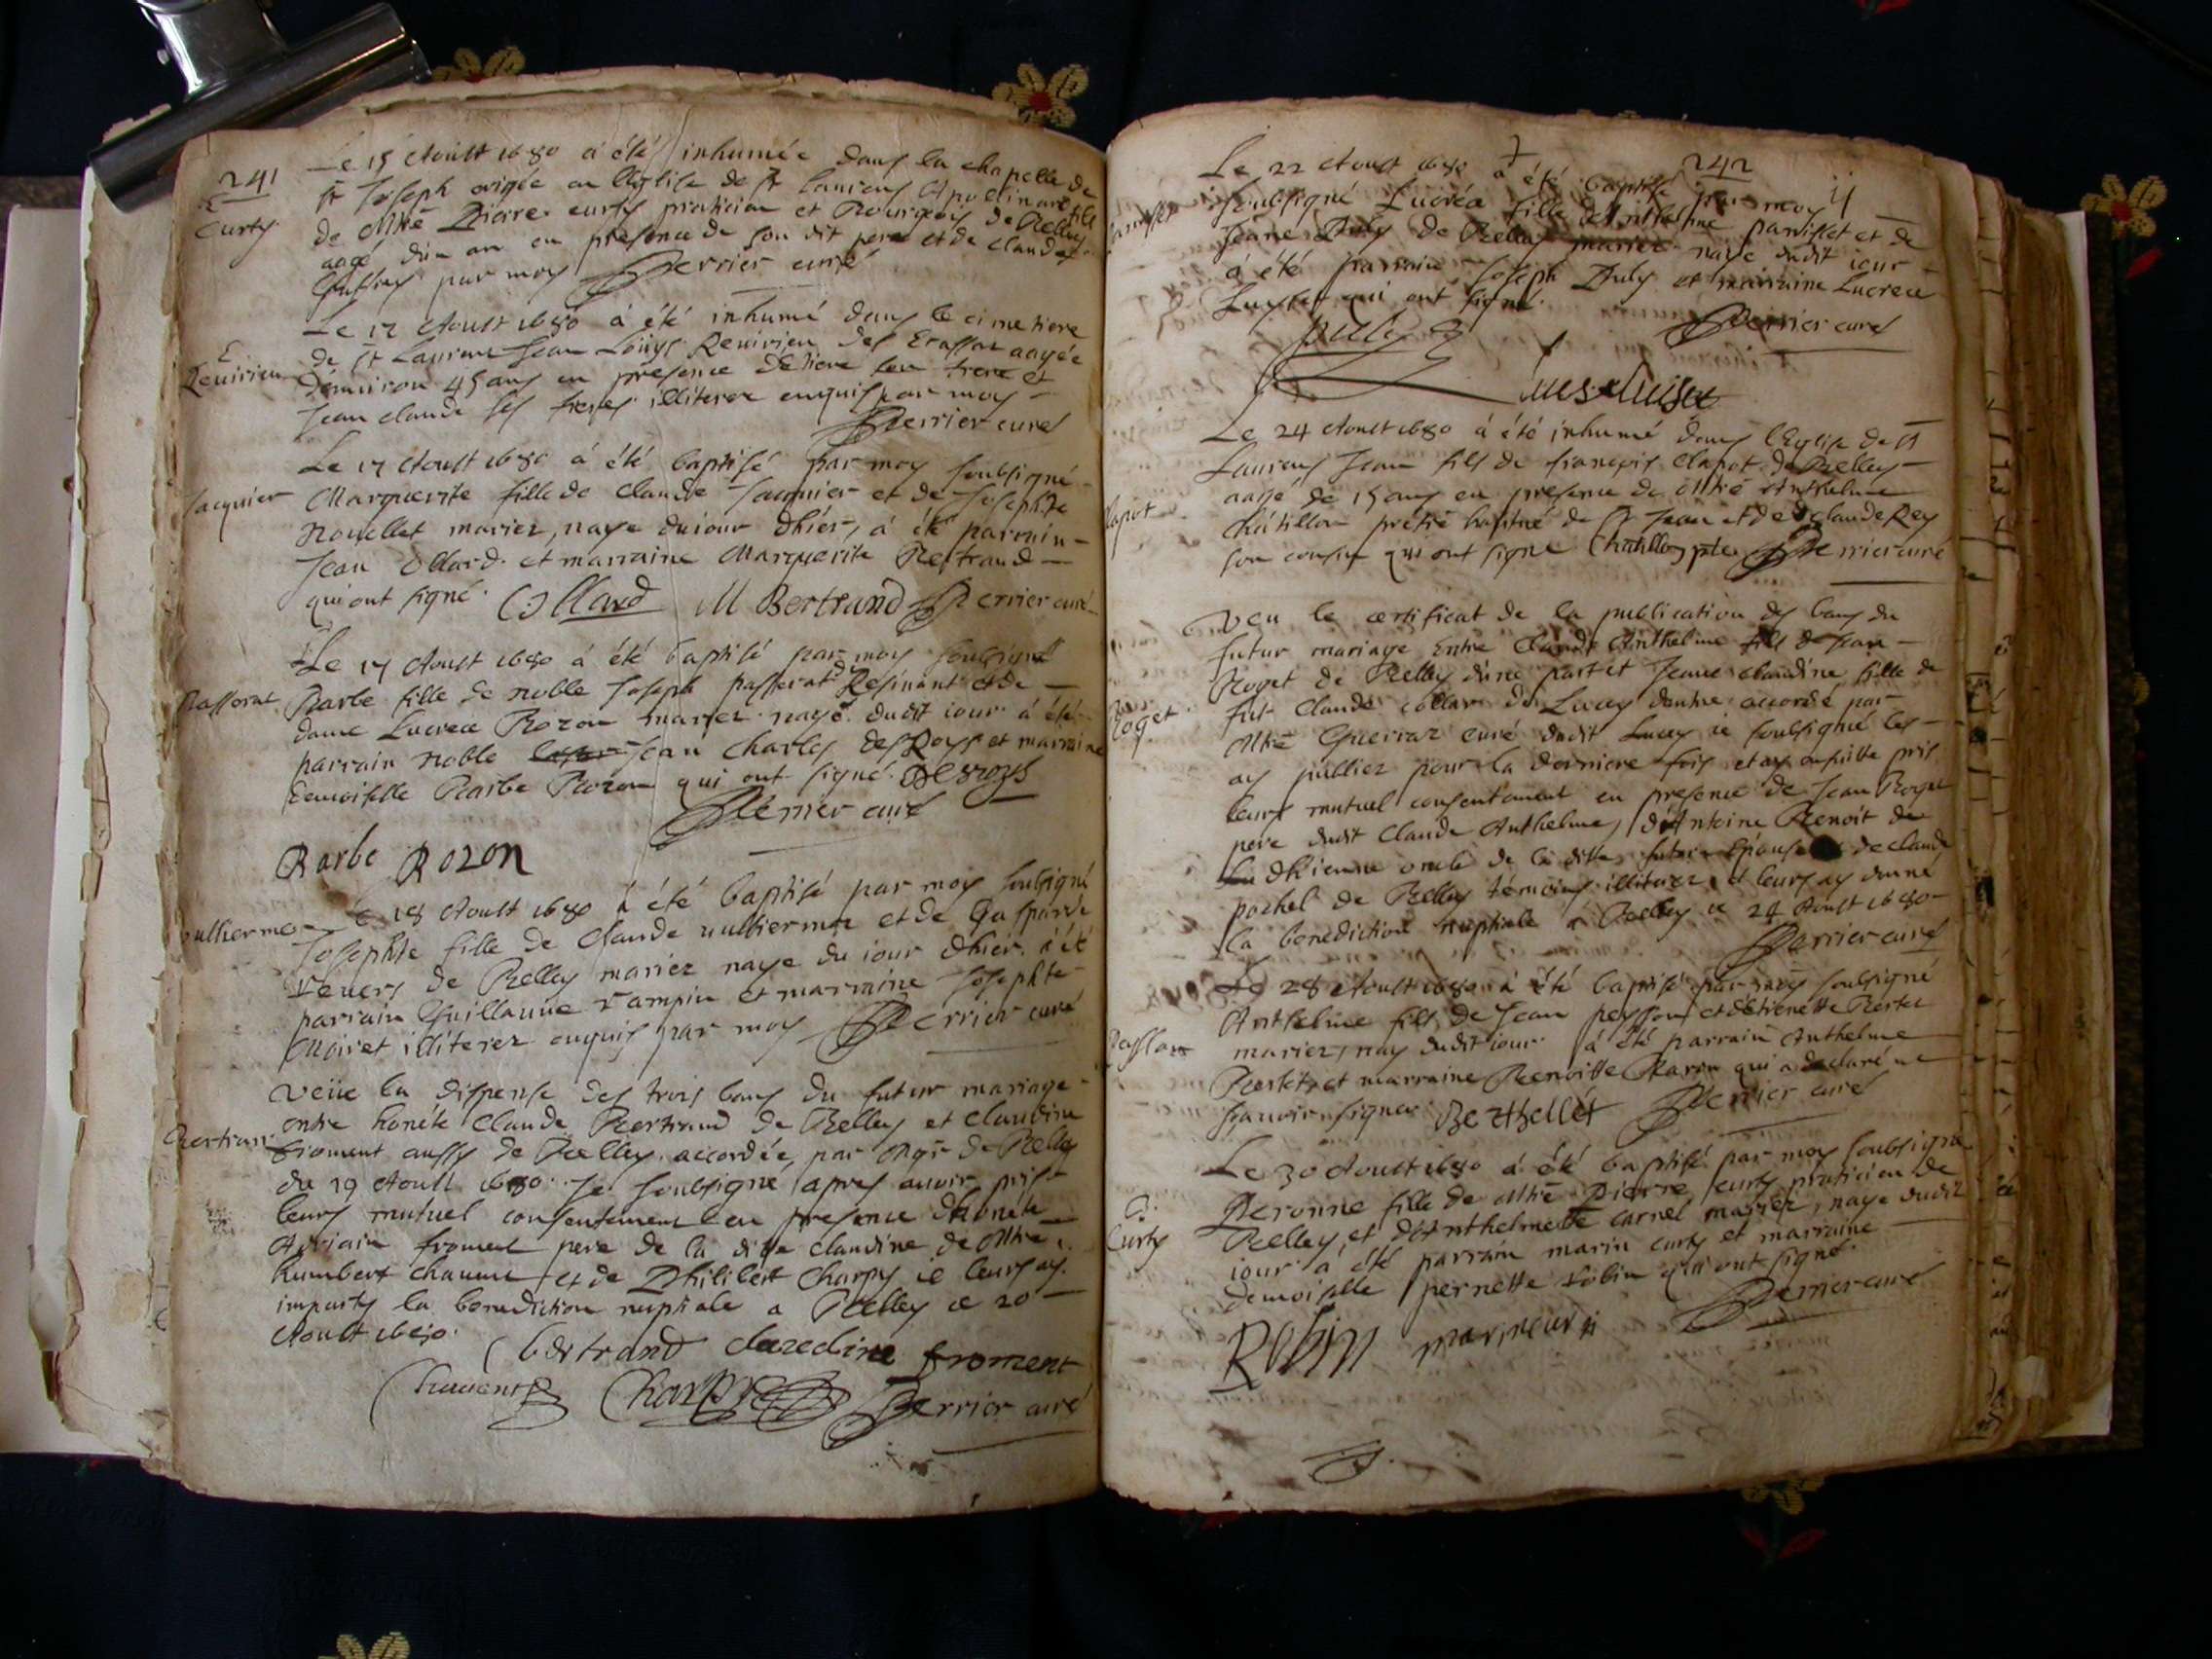 241
Le 15 Aoust 1680 a été inhumée dans la chapelle de
St Joseph erigée en l'Eglise de St Laurens Apolinare fils
Curty
de Mtre Pierre curty praticien et Bourgeois de Belley
aagé d'un an en presence de son dit pere et de claude
par moy Perrier curé
Le 17 Aoust 1680 á été inhumé dans le cimetiere
de St Laurens Jean Loüys Reuirieu des Ecassaz aagée
Reuirieu
d'enuiron 45 ans en presence
Jean claude ses freres illiterez enquis par moy
Perrier curé
Le 17 Aoust 1680 á été baptisé par moy soubsigné
Jacquier
Marguerite fille de Claude Jacquier et de Josephte
Nouellet mariez, naye du iour d'hier, á été parrain
Jean Collard et marraine Marguerite Bertrand
qui ont signé. Collard M Bertrand Perrier curé
Le 17 Aoust 1680 á été baptisé par moy soubsigné
Passerat
Barbe fille de noble Joseph passerat de Resinant et de
dame Lucrece Rozon mariez naye dudit iour á été
parrain noble Jean Charles des Roys et marraine
Demoiselle Barbe Rozon qui ont signé. Desroys
Perrier curé
Barbe Rozon
Le 18 Aoust 1680 á été baptisé par moy soubsigné
vulliermoz
Josephte fille de Claude vulliermoz et de Gasparde
Reuers de Belley mariez naye du iour d'hier. á été
parrain Guillaume rampin et marraine Josephte
Moiret illiterez enquis par moy Perrier curé
Veüe la dispense des trois bans du futur mariage
entre honéte Claude Bertrand de Belley et claudine
Bertran
froment aussy de Belley accordée, par Mgr de Belley
du 19 Aoust 1680. Je soubsigné apres auoir pris
leurs mutuel consentement en presence d'honéte
Adriain froment pere de la ditte claudine de Mtre
humbert chauent et de Philibert Charpy ie leurs ay
imparty la benediction nuptiale a Belley ce 20
Aoust 1680.
bertrand claudine froment
Chauent Charpy Perrier curé
242
Le 22 Aoust 1680 á été baptisé par moy
soubsigné Lucréce fille d'Anthelme parisset et de
parisset
Jeane Puly de Belley mariez naye dudit iour
á été parrain Joseph Puly et marraine Lucrece
qui ont signé.
puly
Perrier curé
Le 24 Aoust 1680 á été inhumé dans l'Eglise de St
Laurens Jean fils de françois clapot de Belley
aagé de 15 ans en presence de Mtre Anthelme
clapot
Châtillon prétre habitué de St Jean et de claude Rey
son cousin qui ont signé Chatillon ptre Perrier curé
Veu le certificat de la publication des bans du
futur mariage entre Claude Anthelme fils de Jean
Roget de Belley d'une part et Jeane claudine fille de
Roget
fut Claude collar de Lucey d'autre accordé par
Mtre Guerraz curé dudit Lucey ie soubsigné les
ay publiez pour la derniere fois et ay ensuitte pris
leurs mutuel consentement en presence de Jean Roget
pere dudit Claude Anthelme, d'Antoine Benoit de
d'hienne oncle de la ditte future Epouse de claude
pochel de Belley témoins illiterez et leurs ay donné
la benediction nuptiale á Belley ce 24 Aoust 1680
Perrier curé
Le 28 Aoust 1680 á été baptisé par moy soubsigné
Anthelme fils de Jean peysson et d'étienette Bertet
Peysson
mariez, nay dudit iour. á été parrain Anthelme
et marraine Benoitte Baron qui a declaré ne
sçauoir signer Berthellet Perrier curé
Le 30 Aoust 1680 á été baptisé par moy soubsigné
Peronne fille de Mtre Pierre curty praticien de
Curty
Belley, et d'Anthelmette carnel mariez, naye dudit
iour a été parrain marin curty et marraine
demoiselle pernette robin qui ont signé.
Perrier curé
Robin marin curti